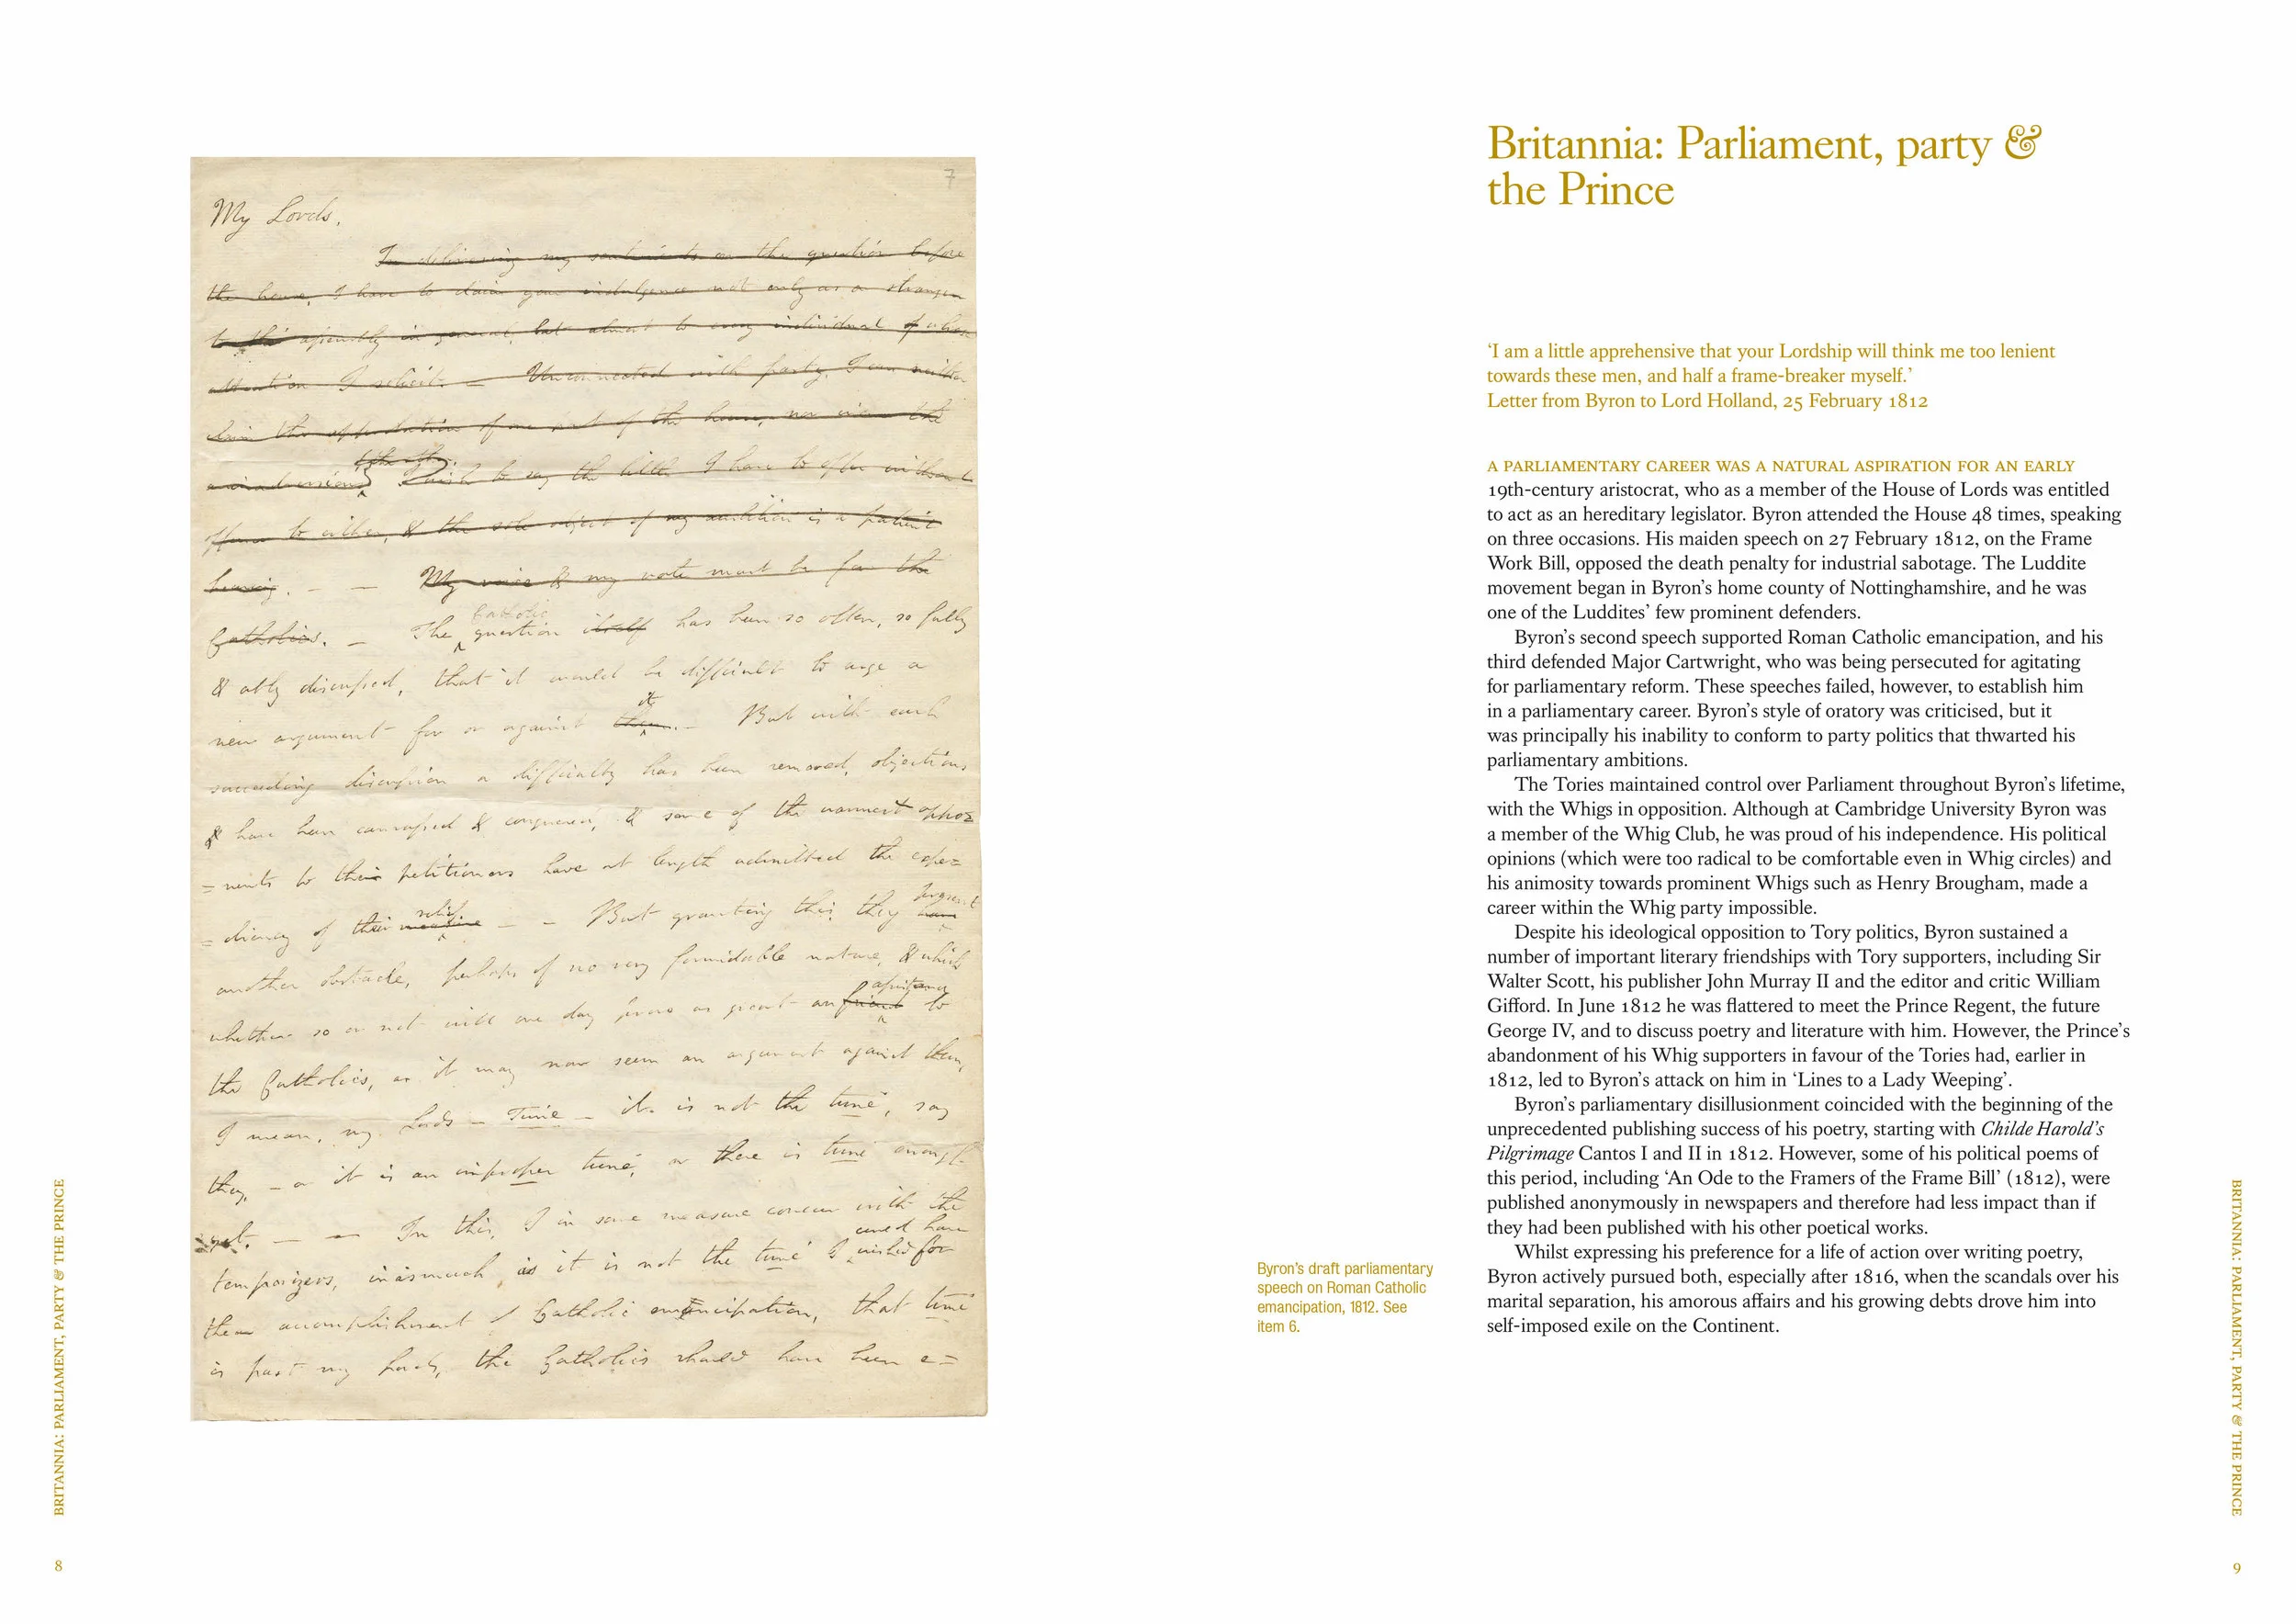 7
My Lords,
In delivering my sentiments on the question before
the house, I have to claim your indulgence not only as a stranger
to this assembly in general, but almost to every individual of whose
attention I solicit. — Unconnected with party, I can neither
claim the approbation of one part of the house, nor
wish to say the little I have to offer without
offence to either, & the sole object of my ambition is a patient
hearing. — — My voice & my vote must be for the
Catholic
Catholics. — The question itself has been so often, so fully
& ably discussed, that it would be difficult to urge a
it
new argument for or against them. — But with each
succeeding discussion a difficulty has been removed, objections
& have been canvassed & conquered, & some of the warmest oppo=
=nents to their petitioners have at length admitted the expe=
relief
=diency of their — — But granting this, they
another obstacle, perhaps of no very formidable nature, & which
whether so or not will one day prove as great an friend to
the Catholics, as it may now seem an argument against them,
I mean, my Lords — Time — it is not the time, say
they, — or it is an improper time, or there is time enough
yet. — — In this, I in some measure concur with the
temporizers, inasmuch as it is not the time to wished for
the accomplishment of Catholic emancipation, that time
is past my Lords, the Catholics should have been e=
BRITANNIA: PARLIAMENT, PARTY & THE PRINCE
8
Britannia: Parliament, party &
the Prince
‘I am a little apprehensive that your Lordship will think me too lenient
towards these men, and half a frame-breaker myself.’
Letter from Byron to Lord Holland, 25 February 1812
A PARLIAMENTARY CAREER WAS A NATURAL ASPIRATION FOR AN EARLY
19th-century aristocrat, who as a member of the House of Lords was entitled
to act as an hereditary legislator. Byron attended the House 48 times, speaking
on three occasions. His maiden speech on 27 February 1812, on the Frame
Work Bill, opposed the death penalty for industrial sabotage. The Luddite
movement began in Byron’s home county of Nottinghamshire, and he was
one of the Luddites’ few prominent defenders.
Byron’s second speech supported Roman Catholic emancipation, and his
third defended Major Cartwright, who was being persecuted for agitating
for parliamentary reform. These speeches failed, however, to establish him
in a parliamentary career. Byron’s style of oratory was criticised, but it
was principally his inability to conform to party politics that thwarted his
parliamentary ambitions.
The Tories maintained control over Parliament throughout Byron’s lifetime,
with the Whigs in opposition. Although at Cambridge University Byron was
a member of the Whig Club, he was proud of his independence. His political
opinions (which were too radical to be comfortable even in Whig circles) and
his animosity towards prominent Whigs such as Henry Brougham, made a
career within the Whig party impossible.
Despite his ideological opposition to Tory politics, Byron sustained a
number of important literary friendships with Tory supporters, including Sir
Walter Scott, his publisher John Murray II and the editor and critic William
Gifford. In June 1812 he was flattered to meet the Prince Regent, the future
George IV, and to discuss poetry and literature with him. However, the Prince’s
abandonment of his Whig supporters in favour of the Tories had, earlier in
1812, led to Byron’s attack on him in ‘Lines to a Lady Weeping’.
Byron’s parliamentary disillusionment coincided with the beginning of the
unprecedented publishing success of his poetry, starting with Childe Harold’s
Pilgrimage Cantos I and II in 1812. However, some of his political poems of
this period, including ‘An Ode to the Framers of the Frame Bill’ (1812), were
published anonymously in newspapers and therefore had less impact than if
they had been published with his other poetical works.
Whilst expressing his preference for a life of action over writing poetry,
Byron actively pursued both, especially after 1816, when the scandals over his
marital separation, his amorous affairs and his growing debts drove him into
self-imposed exile on the Continent.
Byron’s draft parliamentary
speech on Roman Catholic
emancipation, 1812. See
item 6.
BRITANNIA: PARLIAMENT, PARTY & THE PRINCE
9